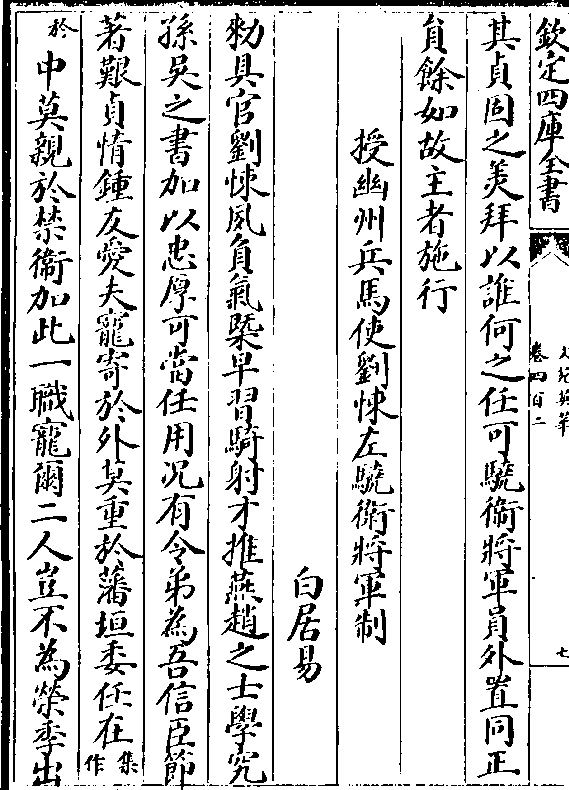 欽定四庫全書
文苑英華
卷四百二
七
其貞固之美拜以誰何之任可驍衞將軍員外置同正
員餘如故主者施行
授幽州兵馬使劉悚左驍衞將軍制
白居易
勑具官劉悚夙負氣槩早習騎射才推燕趙之士學究
孫吳之書加以忠厚可當任用况有令弟為吾信臣節
著艱貞情鍾友愛夫寵寄於外莫重於藩垣委任在集作
於中莫親於禁衞加此一職寵爾二人豈不為榮季出